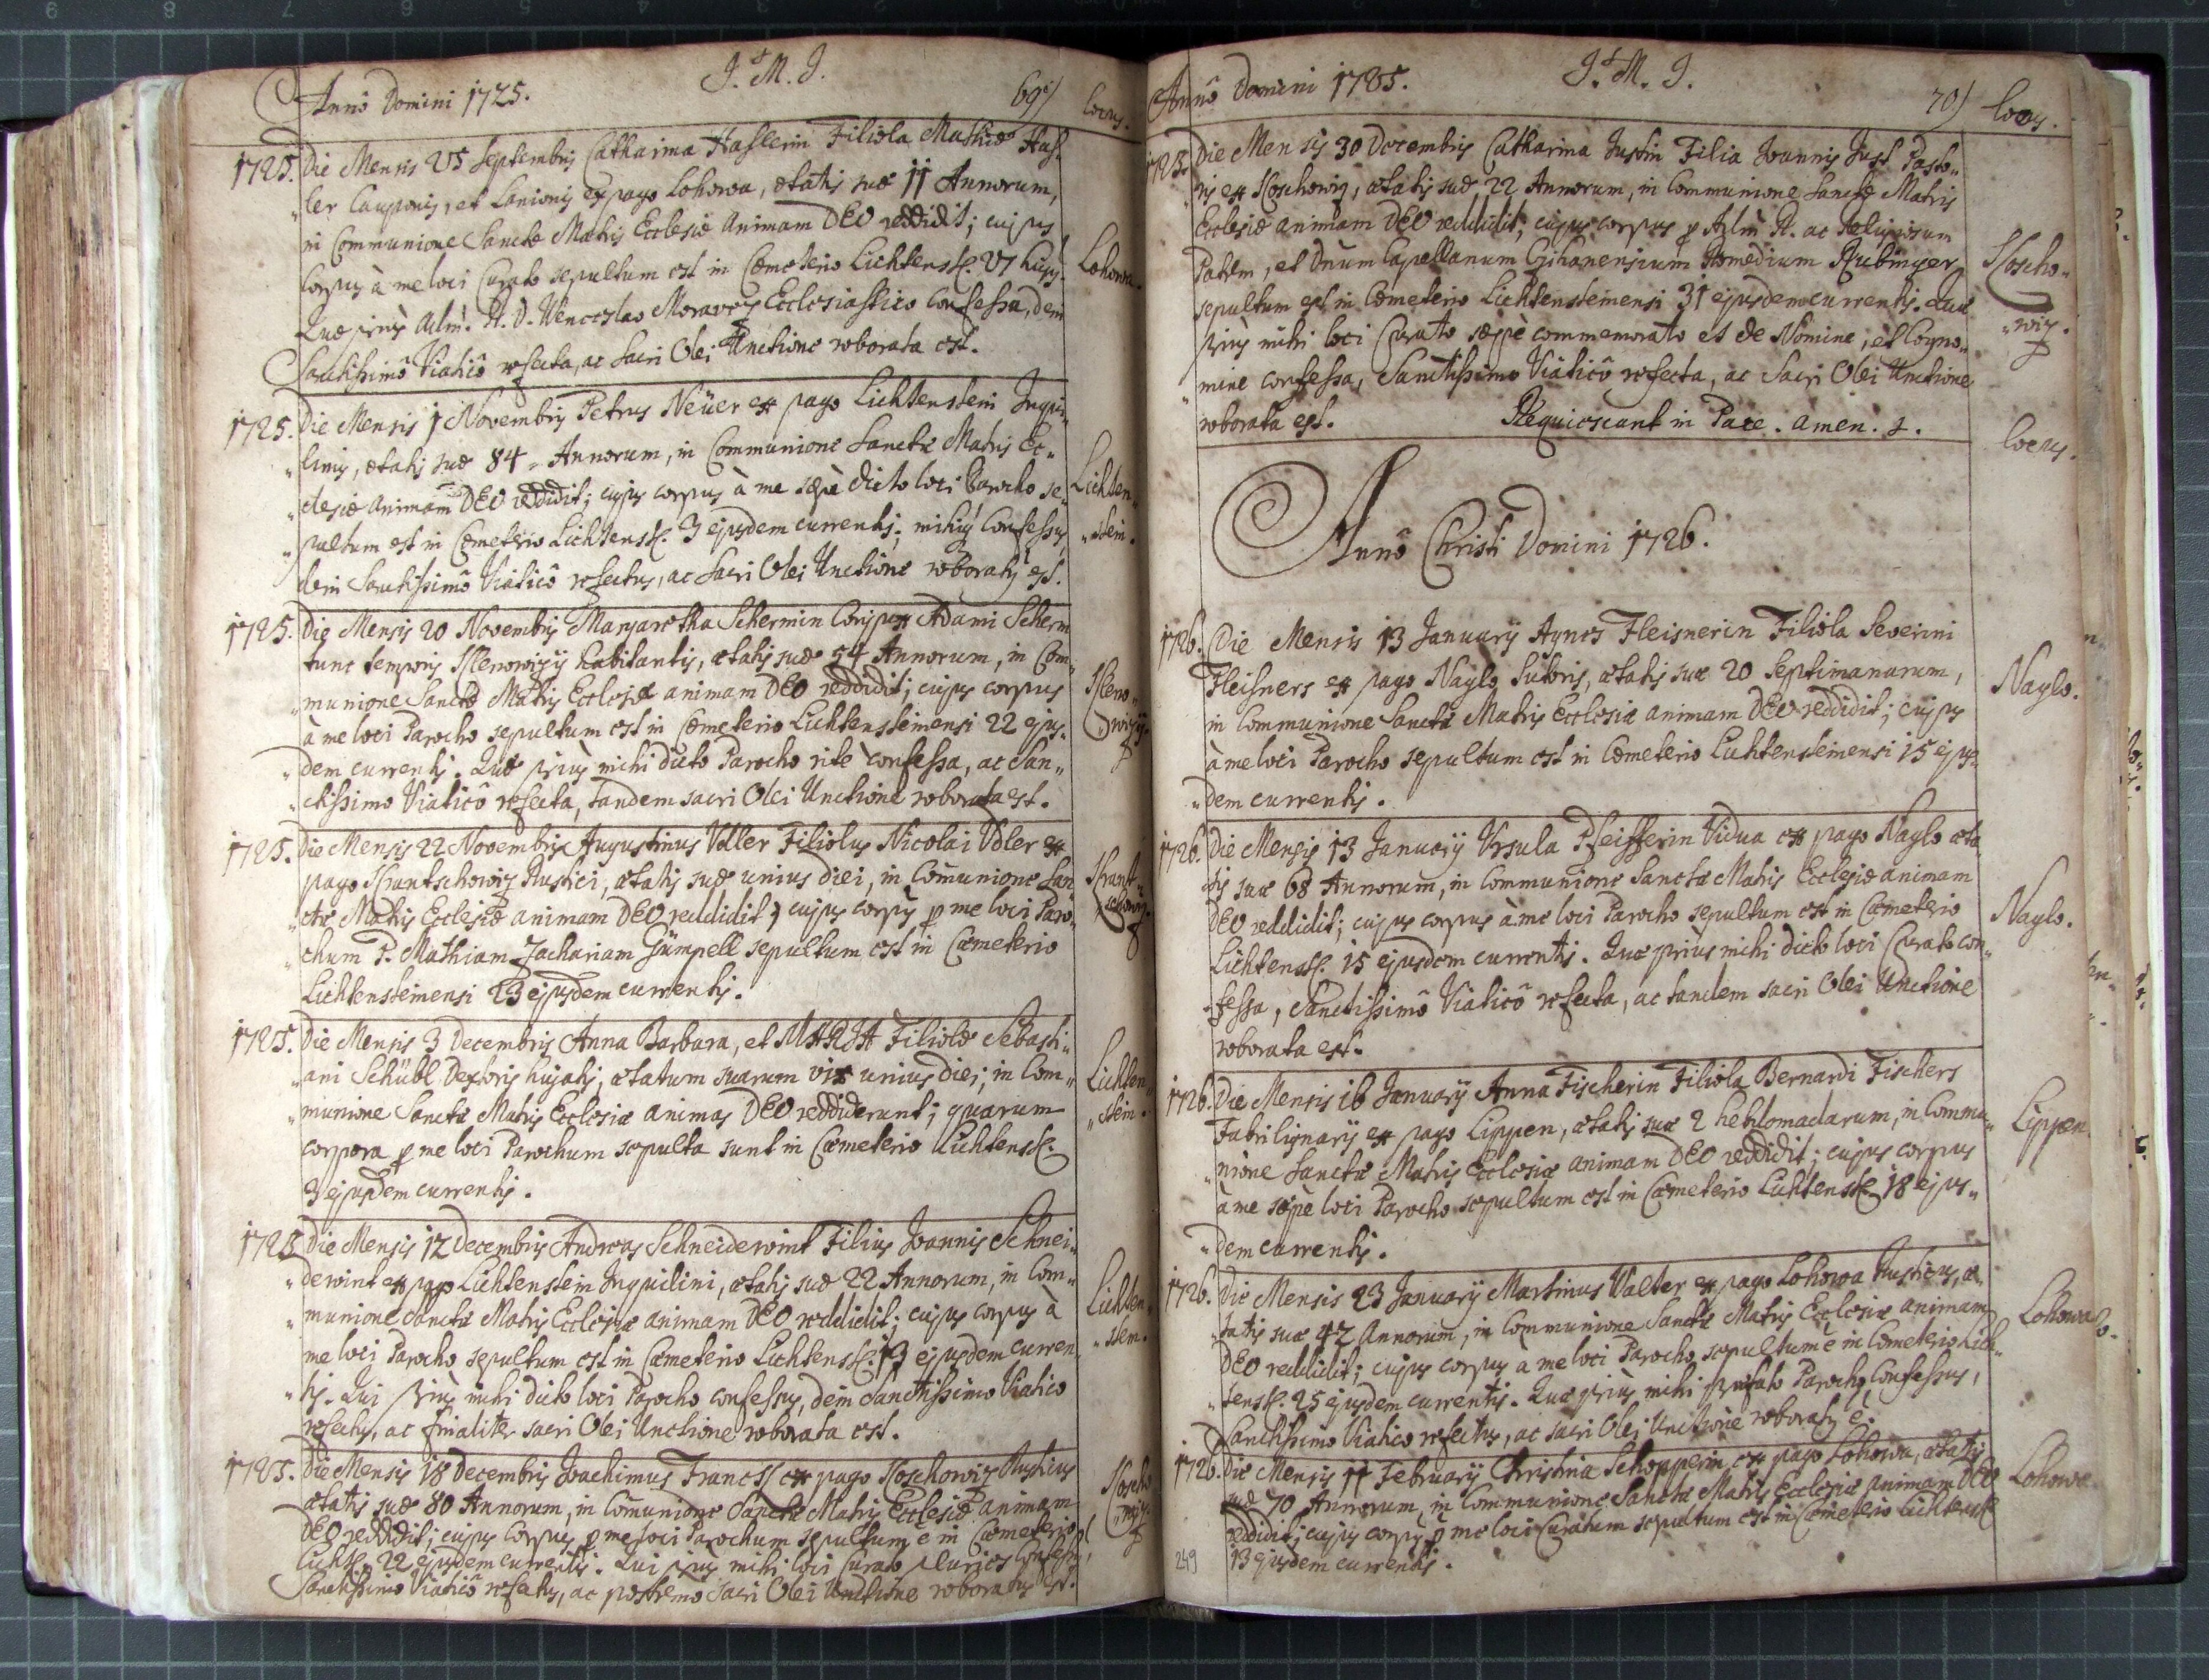 Annô Domini 1725. J. M. J. 69) locus.
1725. Die Mensis 25 Septembris Catharina Haslerin Filiola Mathiæ Has-
ler Cauponis, et Lanionis ex pago Lohowa, ætatis suæ 11 Annorum,
in Communione Sanctæ Matris Ecclesiæ Animam DEO reddidit; cujus
Corpus à me loci Curato sepultum est in Cœmeterio Lichtenst. 27 hujus. Lohowa.
Quæ priùs Adm. R. D. Wenceslao Moravec Ecclesiastico confessa, dein
Sanctissimô Viaticô refecta, ac Sacri Olei Unctione roborata est.
1725. Die Mensis 1 Novembris Petrus Neüer ex pago Lichtenstein Inqui-
linus, ætatis suæ 84 Annorum, in Communione Sanctæ Matris Ec-
clesiæ Animam DEO reddidit; cujus corpus à me sæpè dicto loci Parocho se- Lichten-
pultum est in Cœmeterio Lichtenst. 3 ejusdem currentis; mihiq Confessus, stein.
dein Sanctissimô Viaticô refectus, ac Sacri Olei Unctione roboratus est.
1725. Die Mensis 20 Novembris Margaretha Schermin Conjunx Adami Scherm
tunc temporis habitantis, ætatis suæ 54 Annorum, in Com-
munione Sanctæ Matris Ecclesiæ animam DEO reddidit; cujus corpus
à me loci Parocho sepultum est in Cœmeterio Lichtensteinensi 22 ejus-
dem currentis. Quæ priùs mihi dicto Parocho ritè confessa, ac San-
ctissimo Viaticô refecta, tandem sacri Olei Unctione roborata est.
1725. Die Mensis 22 Novembris Augustinus Udler Filiolus Nicolai Udler ex
pago Krantschowiz Rustici, ætatis suæ unius diei, in Com̄unione San- Krant-
ctæ Matris Ecclesiæ animam DEO reddidit; cujus corpus p me loci Paro- schowiz.
chum P. Mathiam Zachariam Gümpell sepultum est in Cœmeterio
Lichtensteinensi 23 ejusdem currentis.
1725. Die Mensis 3 Decembris Anna Barbara, et MARIA Filiolæ Sebasti-
ani Schübl Textoris hujatis, ætatum suarum vix unius diei; in Com- Lichten-
munione Sanctæ Matris Ecclesiæ animas DEO reddiderunt; quarum stein.
corpora p me loci Parochum sepulta sunt in Cœmeterio Lichtenst.
3 ejusdem currentis.
1725. Die Mensis 12 Decembris Andreas Schneiderwint Filius Joannis Schnei-
derwint ex pago Lichtenstein Inquilini, ætatis suæ 22 Annorum, in Com-
munione Sanctæ Matris Ecclesiæ animam DEO reddidit; cujus corpus à Lichten-
me loci Parocho sepultum est in Cœmeterio Lichtenst. 13 ejusdem curren- stein.
tis. Qui priùs mihi dicto loci Parocho confessus, dein Sanctissimo Viatico
refectus, ac finaliter sacri Olei Unctione roborata est.
1725. Die Mensis 18 Decembris Joachimus ex pago Koschowiz Rusticus Koscho
ætatis suæ 80 Annorum, in Com̄unione Sanctæ Matris Ecclesiæ animam wiz.
DEO reddidit; cujus Corpus p me loci Parochum sepultum ē in Cœmeterio
Lichst. 22 ejusdem currentis. Qui priùs mihi loci Curato pluries Confessus,
Sanctissimo Viaticô refectus, ac postremo Sacri Olei Unctione roboratus est.
Annô Domini 1725. J. M. J. 70) locus.
1725. Die Mensis 30 Decembris Catharina Justin Filia Joannis Just Pasto-
ris ex Koschowiz, ætatis suæ 22 Annorum, in Communione Sanctæ Matris
Ecclesiæ animam DEO reddidit; cujus corpus p Adm R. ac Religiosum
Patrem, et Dnum Capellanum Romedium Rubinger Koscho-
sepultum est in Cœmeterio Lichtensteinensi 31 ejusdem currentis. Quæ wiz.
priùs mihi loci Curato sæpè commemorato et de Nomine, et Cogno-
mine confessa, Sanctissimo Viaticô refecta, ac Sacri Olei Unctione
roborata est. Requiescant in Pace. Amen. locus.
Annô Christi Domini 1726.
1726. Die Mensis 13 Januarij Agnes Fleisnerin Filiola Severini
Fleisners ex pago Naglo Sutoris, ætatis suæ 20 Septimanarum, Naglo.
in Communione Sanctæ Matris Ecclesiæ animam DEO reddidit; cujus
à me loci Parocho sepultum est in Cœmeterio Lichtensteinensi 15 ejus-
dem currentis.
1726. Die Mensis 13 Januarij Ursula Pfeifferin Vidua ex pago Naglo æta-
tis suæ 68 Annorum, in Communione Sanctæ Matris Ecclesiæ animam
DEO reddidit; cujus corpus à me loci Parocho sepultum est in Cœmeterio Naglo.
Lichtenst. 15 ejusdem currentis. Quæ priùs mihi dicto loci Curato con-
fessa, Sanctissimô Viaticô refecta, ac tandem sacri Olei Unctione
roborata est.
1726. Die Mensis 16 Januarij Anna Fischerin Filiola Bernardi Fischers
Fabri lignarij ex pago Lippen, ætatis suæ 2 hebdomadarum, in Commu- Lippen.
nione Sanctæ Matris Ecclesiæ animam DEO reddidit; cujus corpus
à me sæpè loci Parocho sepultum est in Cœmeterio Lichtenst. 18 ejus-
dem currentis.
1726. Die Mensis 23 Januarij Martinus Walter ex pago Lohowa Rusticus, æ-
tatis suæ 42 Annorum, in Communione Sanctæ Matris Ecclesiæ animam Lohowa.
DEO reddidit; cujus corpus à me loci Parocho sepultum ē in Cœmeterio Lich-
tenst. 25 ejusdem currentis. Quæ priùs mihi præfato Parocho Confessus,
Sanctissimo Viatico refectus, ac sacri Olei Unctione roboratus ē.
1726. Die Mensis 11 Februarij Christina Schopperin ex pago Lohowa, ætatis
suæ 70 Annorum, in Communione Sanctæ Matris Ecclesiæ animam DEO Lohowa
reddidit; cujus corpus p me loci Curatum sepultum est in Cœmeterio Lichtenst.
249 13 ejusdem currentis.